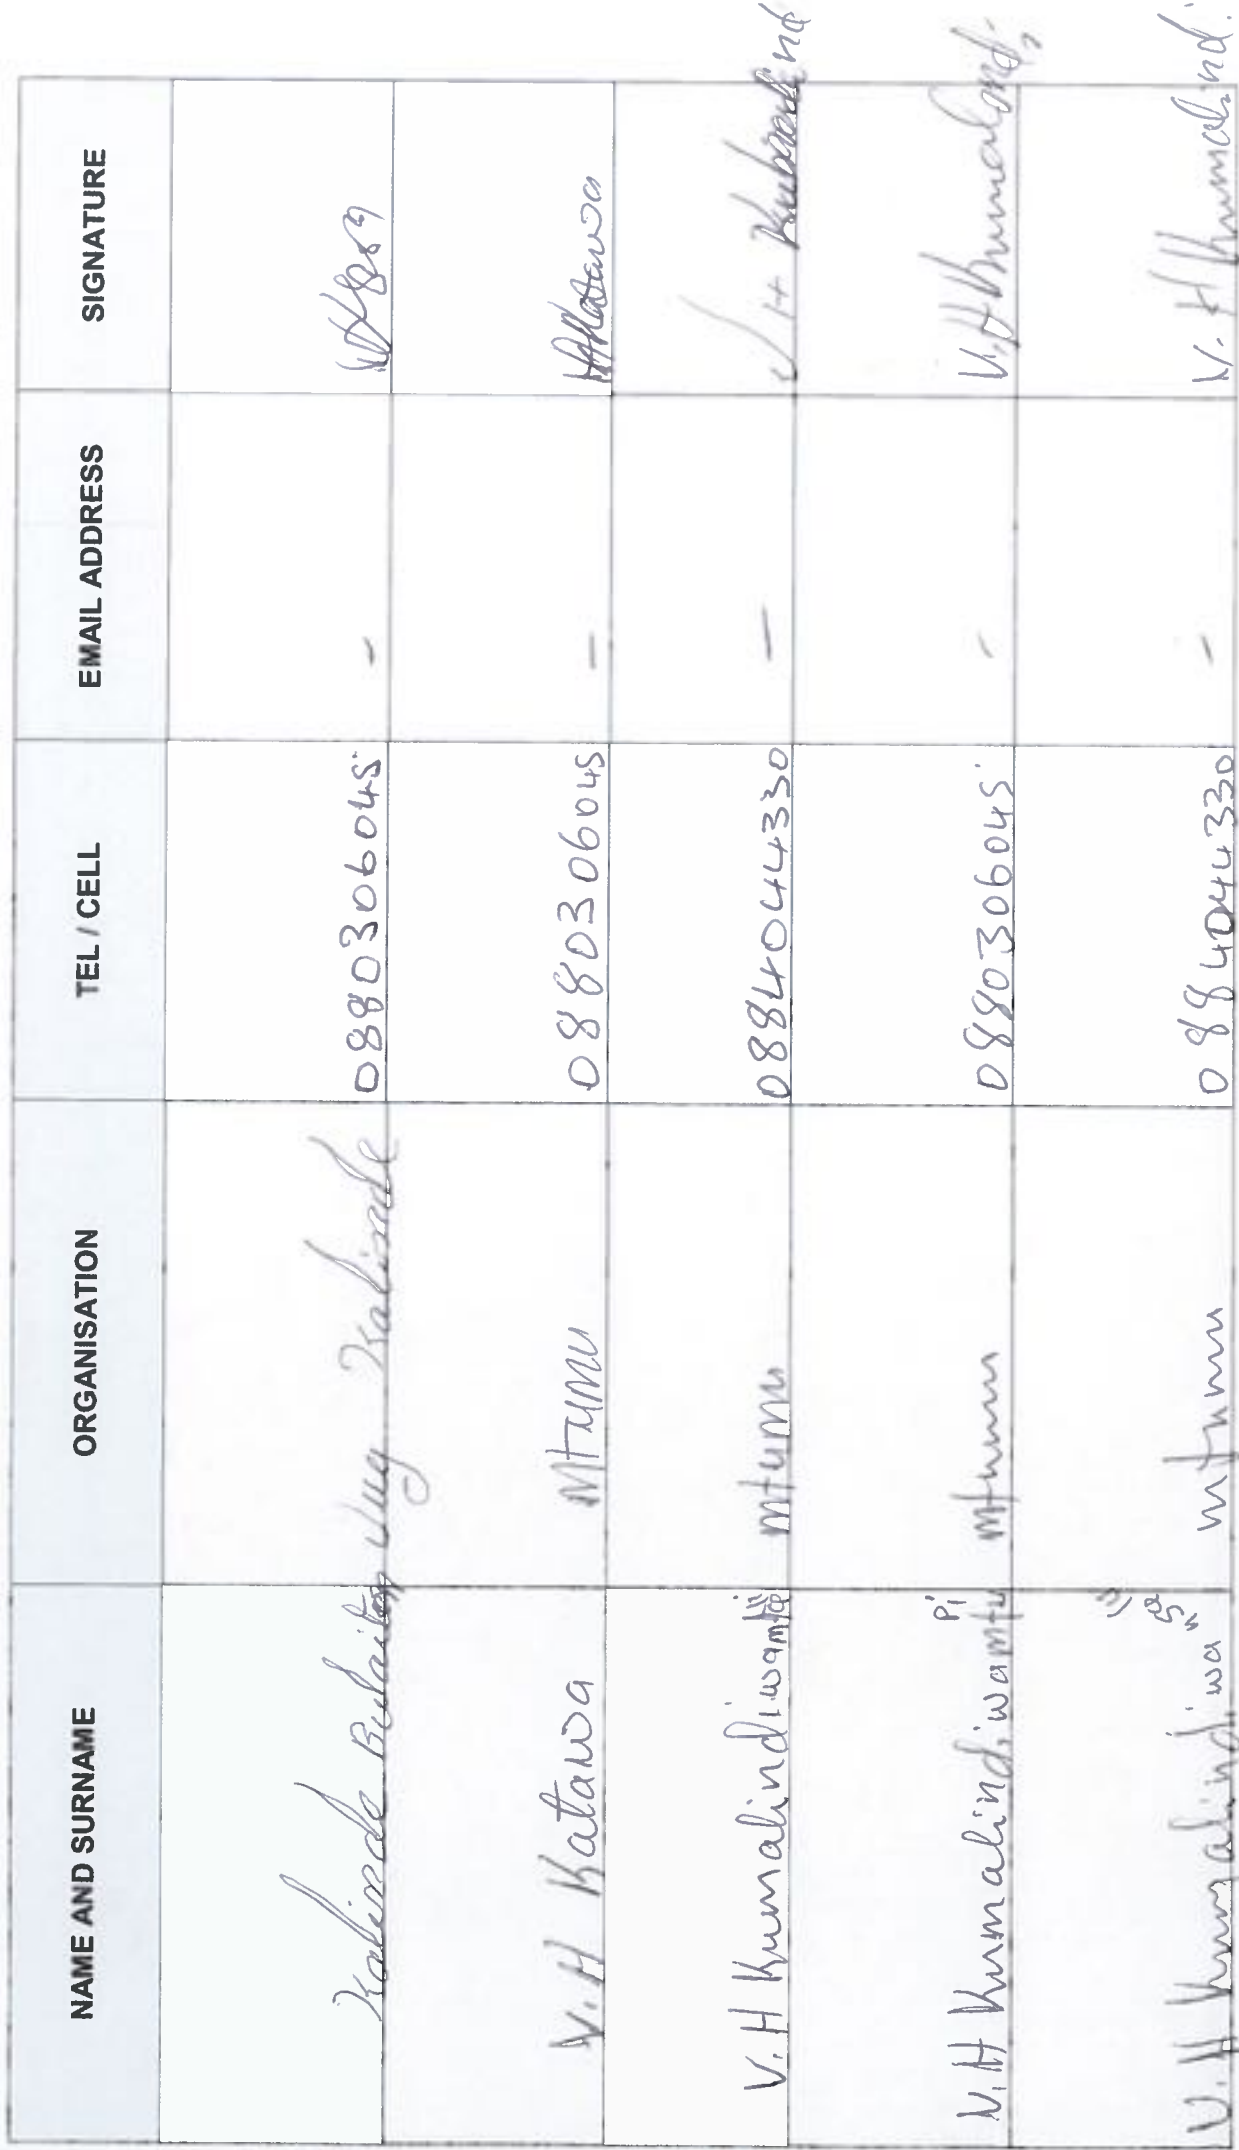 NAME AND SURNAME ORGANISATION TEL / CELL EMAIL ADDRESS SIGNATURE
Kalinde 0880306045 -
V.H Katawa Mtumu 0880306045 - Katawa
V.H Kumalindiwa mtumu 0884044330 -
V.H Kumalindiwa mtumu 0880306045 - V.H Kumalondi
V.H Kumalindiwa mtumu 0884044330 - V.H Kumalindi